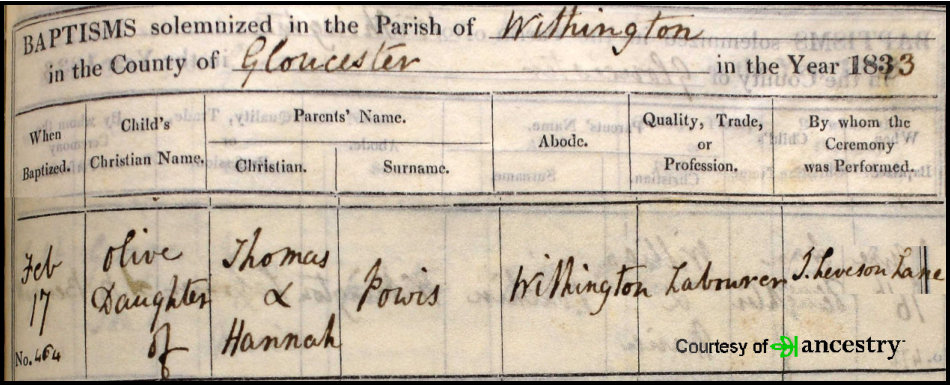 BAPTISMS solemnized in the Parish of Withington
in the County of Gloucester in the Year 1833
When Baptized.
Child's Christian Name.
Parents' Name.
Christian.
Surname.
Abode.
Quality, Trade, or Profession.
By whom the Ceremony was Performed.
Feb
17
No. 464
Olive
Daughter
of
Thomas
&
Hannah
Powis
Withington
Labourer
J. Leveson Lane
Courtesy of ancestry